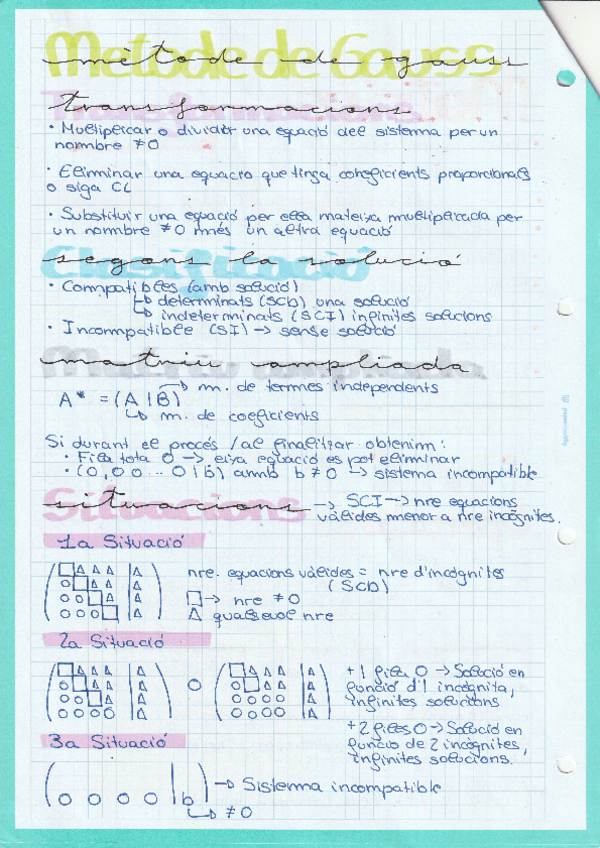 mètode de gauss
transformacions
· Multiplicar o dividir una equació del sistema per un
nombre ≠0
· Eliminar una equació que tinga coneficients proporcionals
o siga CL
· Substituir una equació per ella mateixa multiplicada per
un nombre ≠0 més un altra equació
Clasificació
segons la solució
· Compatibles (amb solució)
↳ determinats (SCD) una solució
↳ indeterminats (SCI) infinites solucions
· Incompatible (SI) → sense solució
matriu ampliada
A* = (A|B) → m. de termes independents
↳ m. de coeficients
Si durant el procés / al finalitzar obtenim:
· Fila tota 0 → eixa equació es pot eliminar
· (0,0 0 ... 0|b) amb b≠0 → sistema incompatible
situacions → SCI → nre equacions
vàlides menor a nre incògnites.
1a Situació
□ △ △ △ | △
0 □ △ △ | △
0 0 □ △ | △
0 0 0 □ | △
nre. equacions vàlides = nre d'incògnites
(SCD)
□ → nre ≠0
△ qualsevol nre
2a Situació
□ △ △ △ | △
0 □ △ △ | △
0 0 □ △ | △
0 0 0 0 | △
o
□ △ △ △ | △
0 □ △ △ | △
0 0 0 0 | △
0 0 0 0 | △
+1 fila 0 → Solució en
funció d'1 incògnita,
infinites solucions
+2 files 0 → Solució en
funció de 2 incògnites,
infinites solucions.
3a Situació
(0 0 0 0 | b) → Sistema incompatible
↳ ≠0